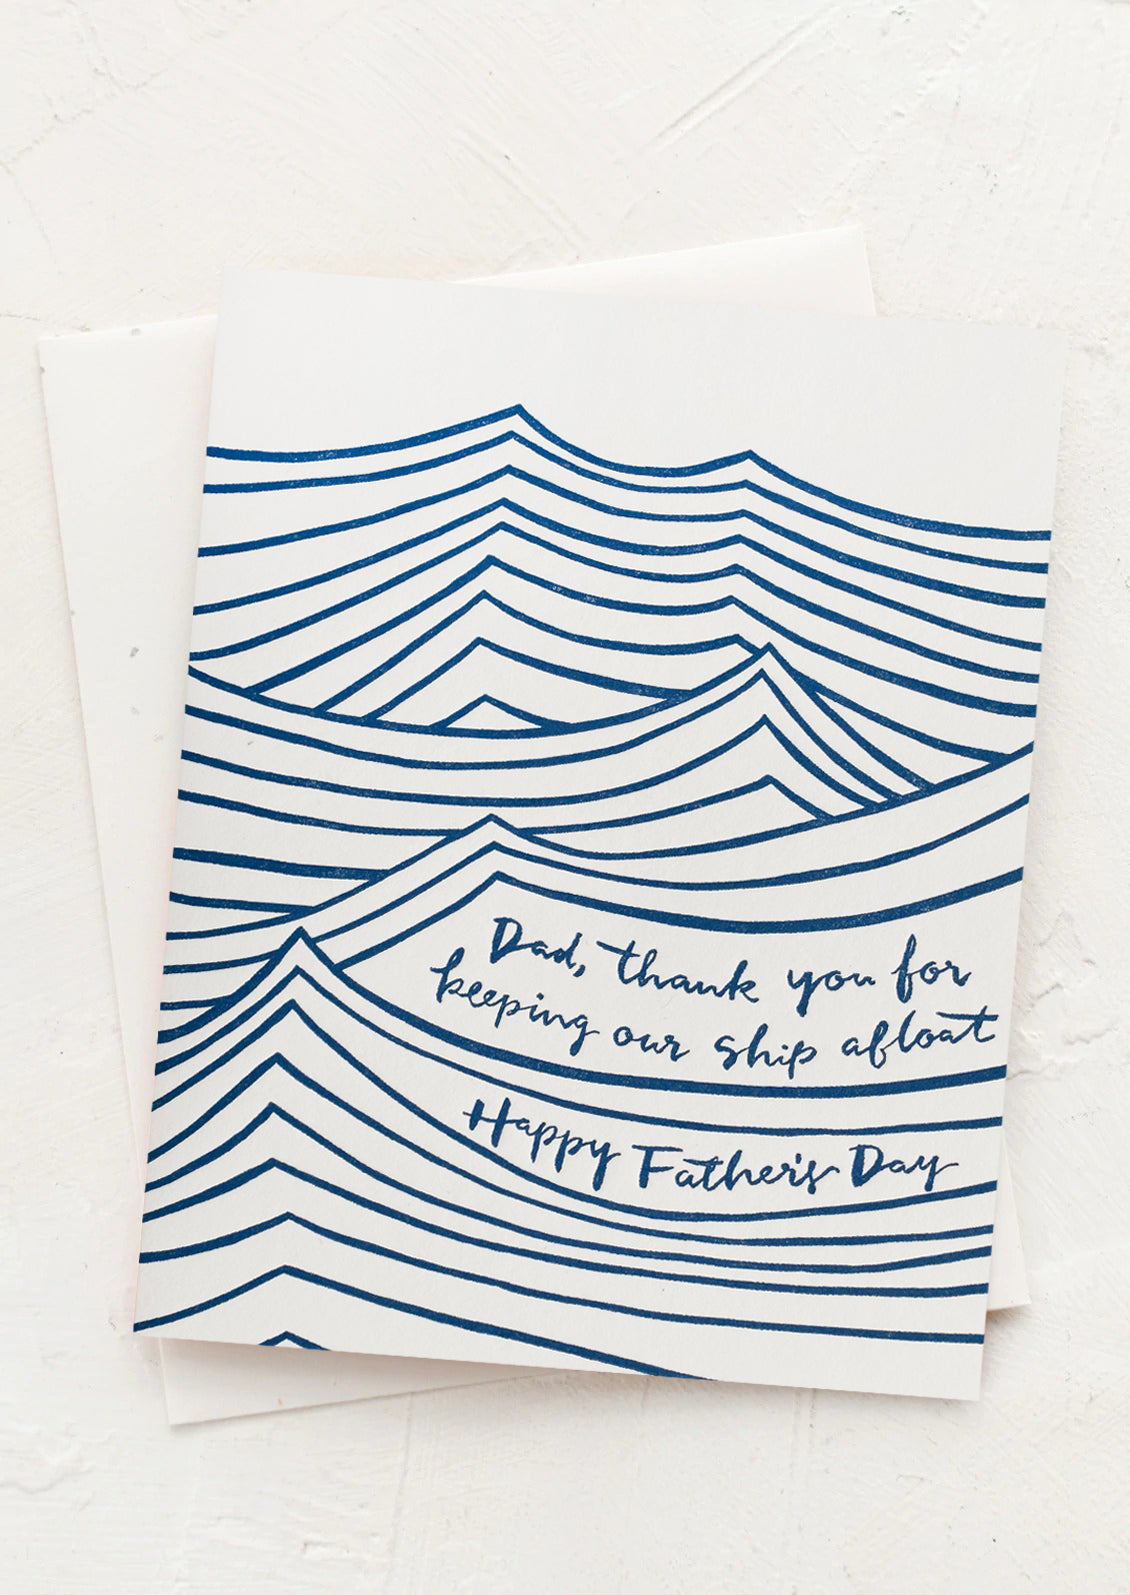 Dad, thank you for
keeping our ship afloat
Happy Father's Day